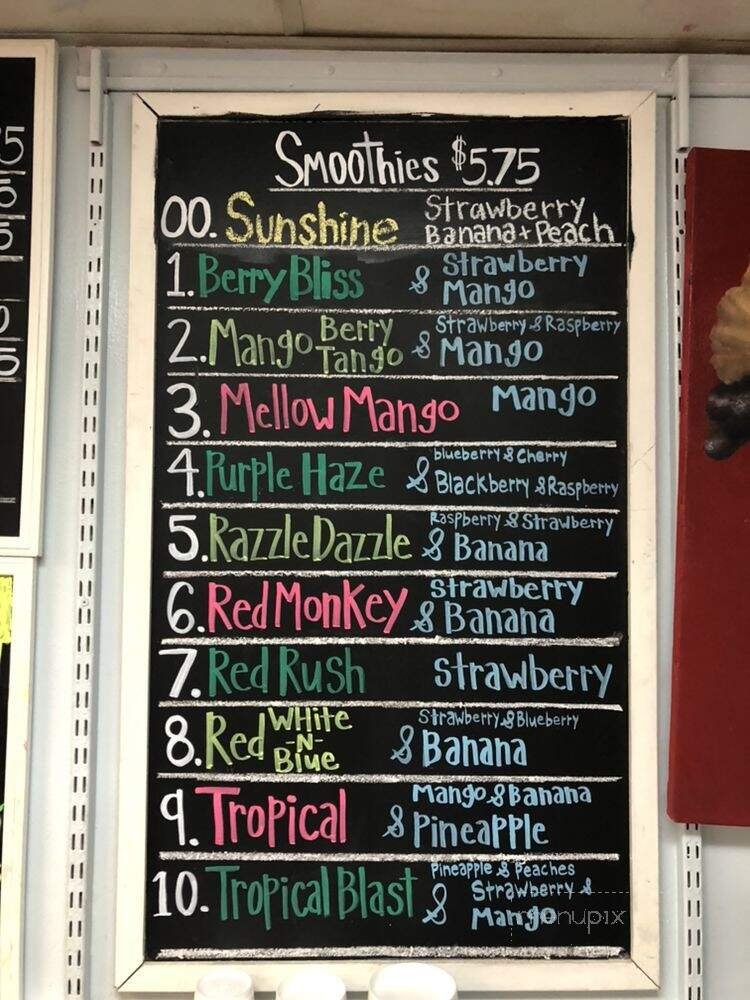 Smoothies $5.75
00. Sunshine Strawberry
Banana + Peach
1. Berry Bliss Strawberry
& Mango
2. Mango Berry Tango Strawberry & Raspberry
& Mango
3. Mellow Mango Mango
4. Purple Haze blueberry & Cherry
& Blackberry & Raspberry
5. Razzle Dazzle Raspberry & Strawberry
& Banana
6. Red Monkey Strawberry
& Banana
7. Red Rush Strawberry
8. Red White -N- Blue Strawberry & Blueberry
& Banana
9. Tropical Mango & Banana
& Pineapple
10. Tropical Blast Pineapple & Peaches
& Strawberry &
Mango
menupix